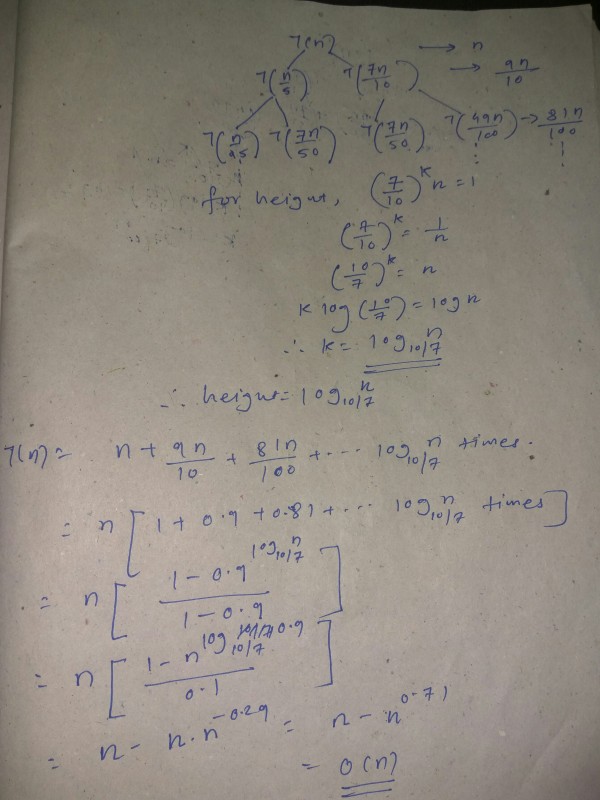 T(n) → n
T(n/5) T(7n/10) → 9n/10
T(n/25) T(7n/50) T(7n/50) T(49n/100) → 81n/100
for height, (7/10)^k n = 1
(7/10)^k = 1/n
(10/7)^k = n
k log(10/7) = log n
∴ k = log_{10/7} n
∴ height = log_{10/7} n
T(n) = n + 9n/10 + 81n/100 + ... log_{10/7} n times.
= n [1 + 0.9 + 0.81 + ... log_{10/7} n times]
= n [(1 - 0.9^{log_{10/7} n}) / (1 - 0.9)]
= n [(1 - n^{log_{10/7} 0.9}) / 0.1]
= n - n.n^{-0.29} = n - n^{0.71}
= O(n)